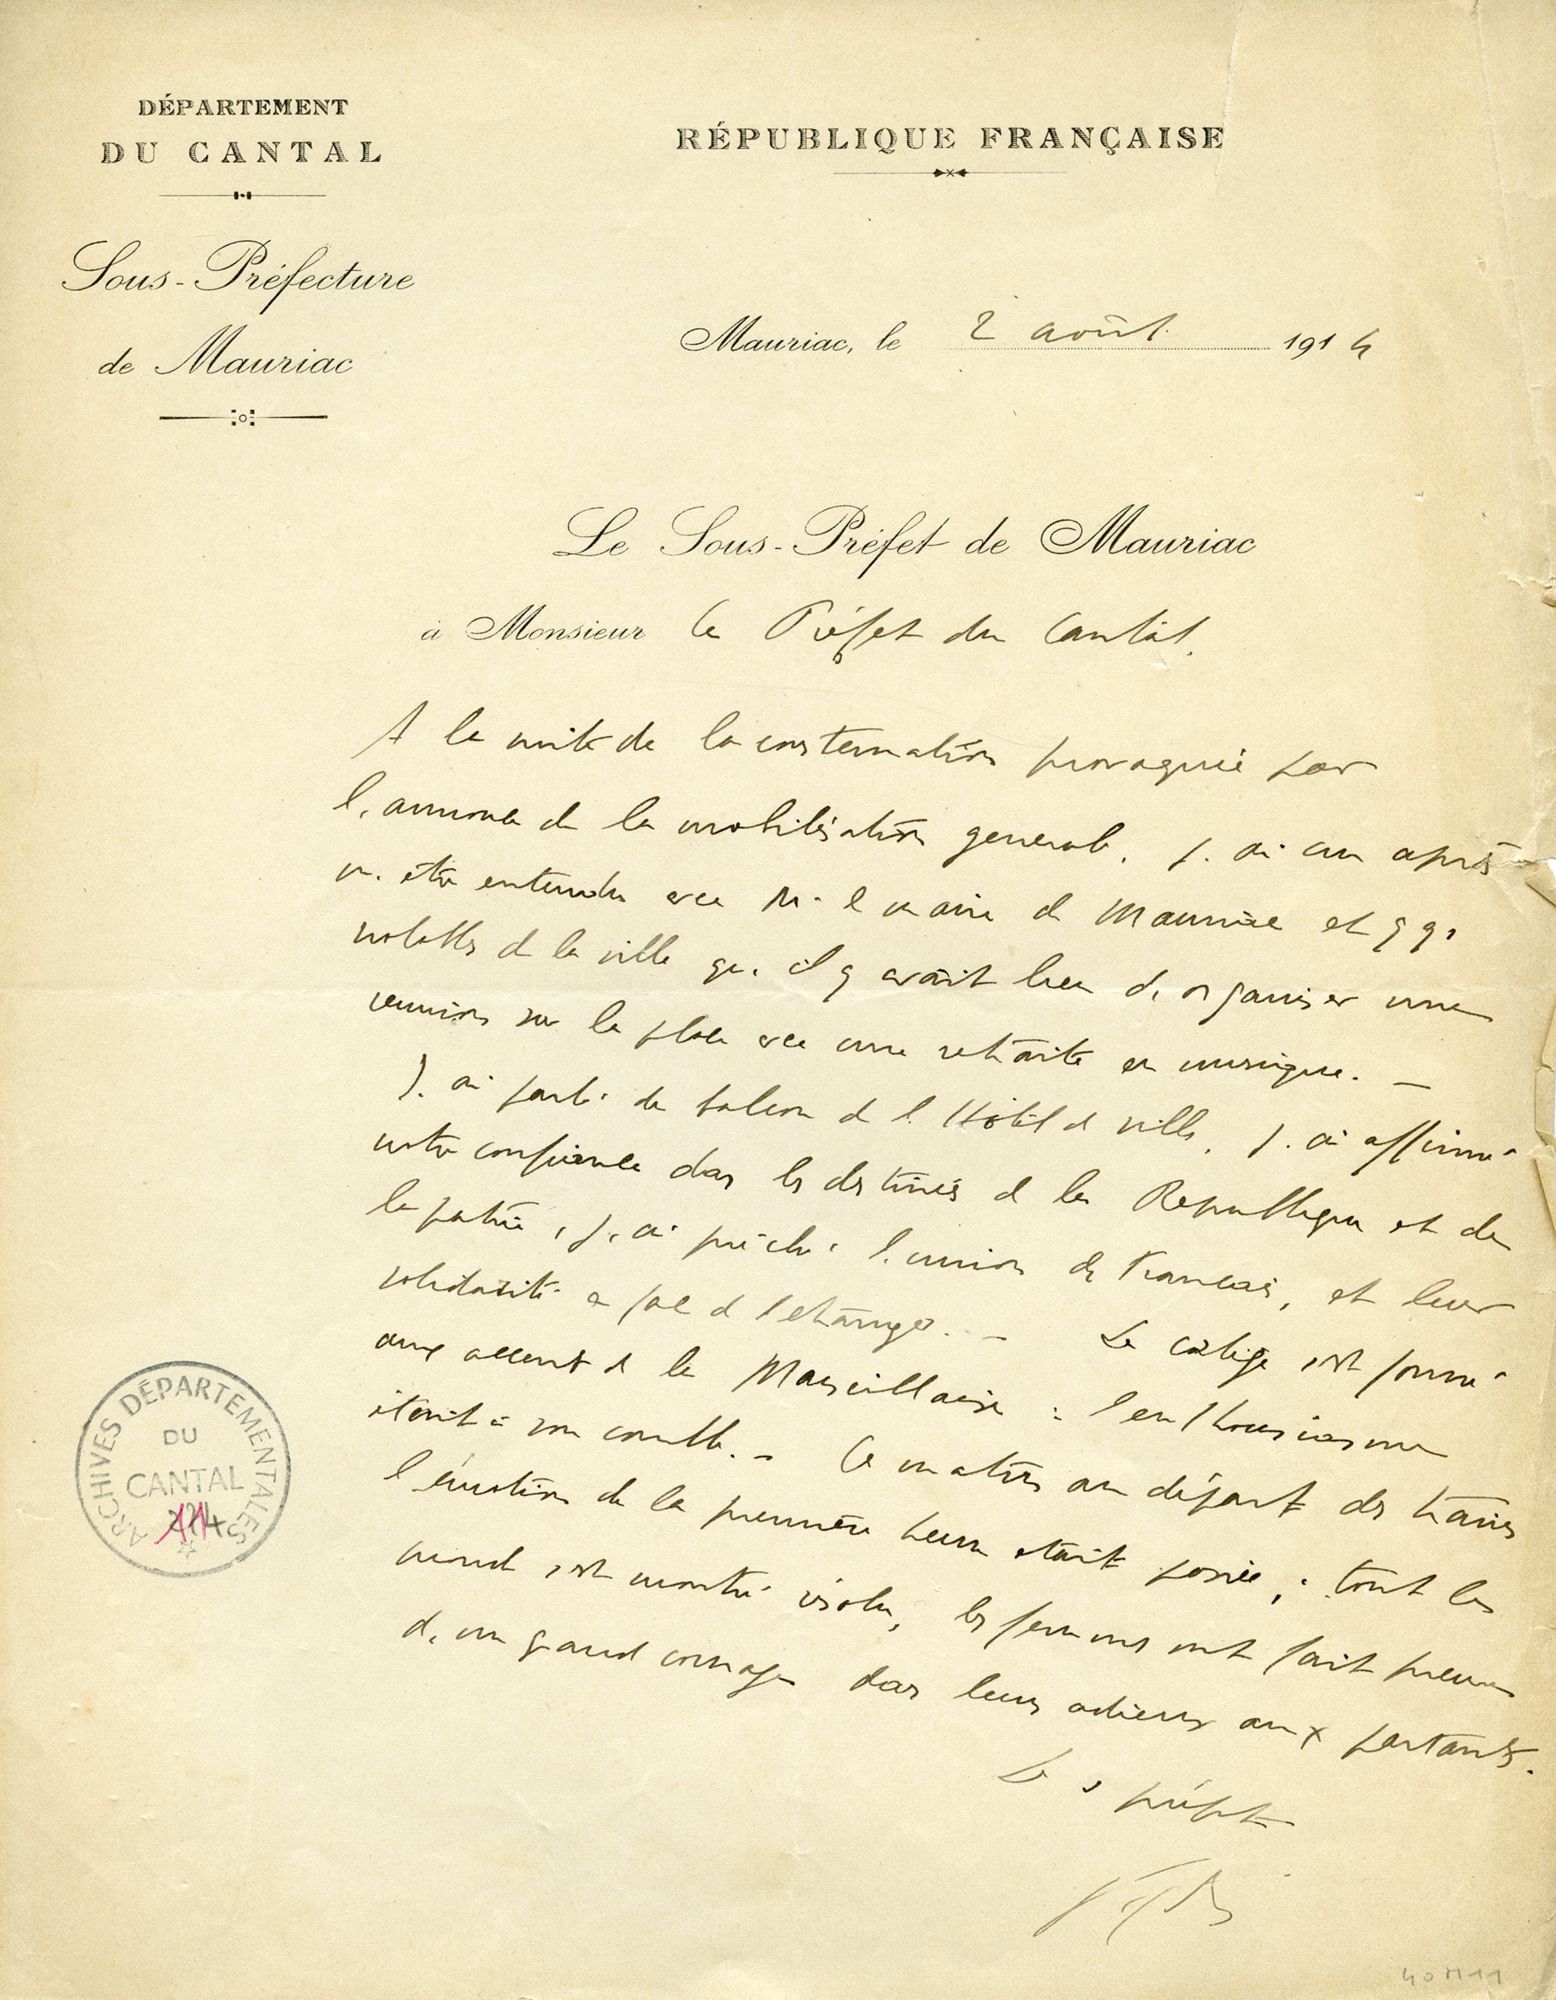 DÉPARTEMENT
DU CANTAL
Sous-Préfecture
de Mauriac
RÉPUBLIQUE FRANÇAISE
Mauriac, le 2 août 1914
Le Sous-Préfet de Mauriac
à Monsieur le Préfet du Cantal.
A la suite de la consternation provoquée par
l'annonce de la mobilisation generale, j'ai cru après
m'être entendu avec Mr le maire de Mauriac et qq.
notables de la ville qu'il y avait lieu d'organiser une
reunion sur la place avec une retraite en musique. —
J'ai parlé du balcon de l'Hôtel de ville. J'ai affirmé
notre confiance dans les destinées de la Republique et de
la patrie, j'ai prêché l'union des Francais, et leur
solidarité en face de l'etranger. — Le cortège s'est formé
aux accents de la Marseillaise : l'enthousiasme
était à son comble. — Ce matin au départ des trains
l'émotion de la première heure etait passée ; tout le
monde s'est montré résolu, les femmes ont fait preuve
d'un grand courage dans leurs adieux aux partants.
Le s préfet
ARCHIVES DÉPARTEMENTALES
DU
CANTAL
40 M 11